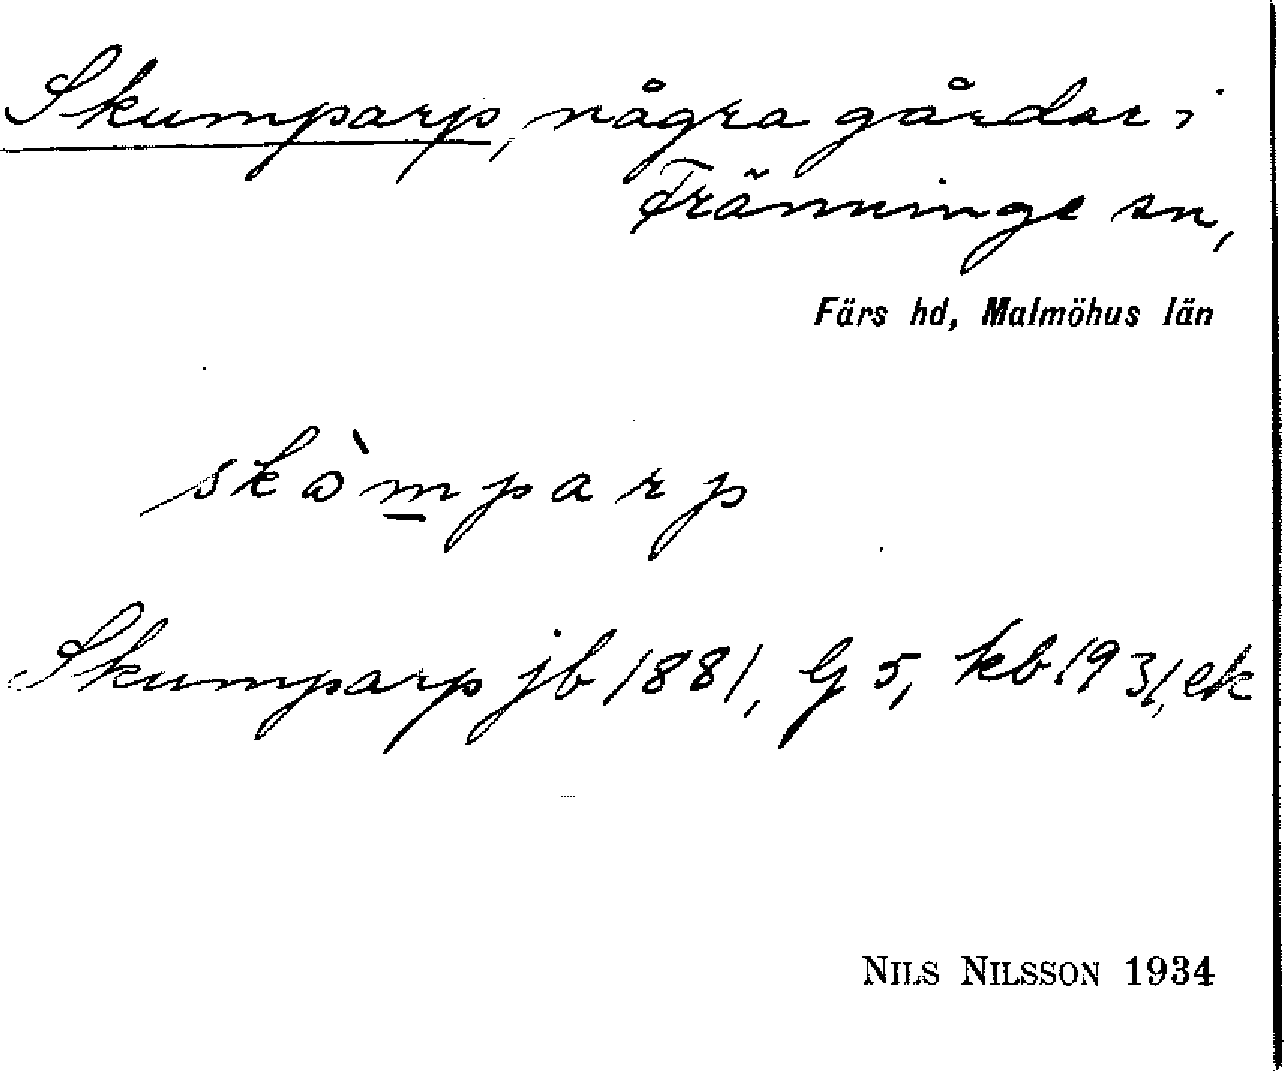 Skumparp, några gårdar i
Fränninge sn,
Färs hd, Malmöhus län
skòmparp
Skumparp jb 1881, G 5, kb 1931, ek
NILS NILSSON 1934